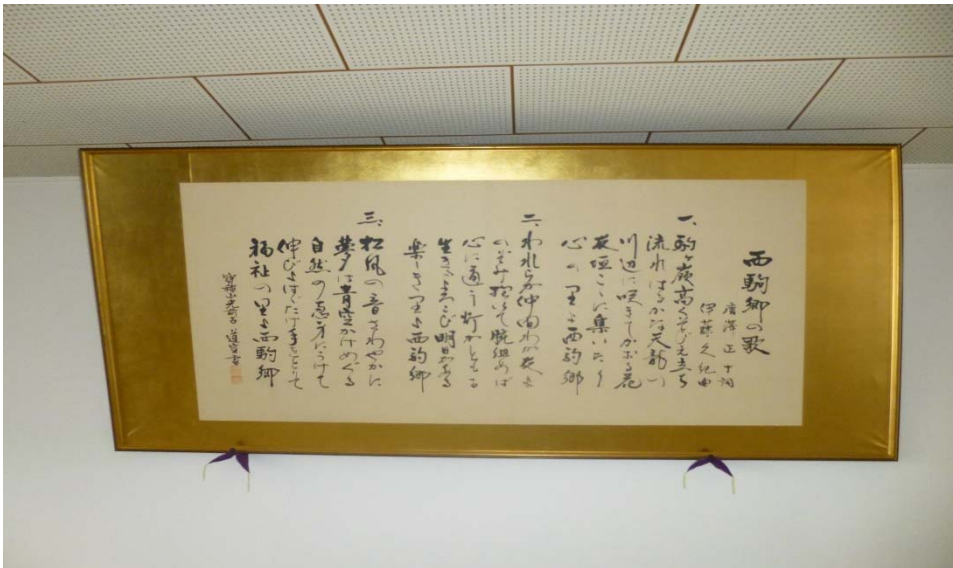 西駒郷の歌
唐澤正十詞
伊藤久紀曲
一、駒ヶ嶺高くそびえ立ち
流れはるかな天龍の
川辺に咲きてかおる花
友垣ここに集いたり
心の里よ西駒郷
二、われらが仲間わが友と
のぞみ抱いて腕組めば
心に通う灯がともる
生きるよろこび明日がある
楽しき里よ西駒郷
三、松風の音さわやかに
夢は青空かけめぐる
自然の恵み身にうけて
伸びよはぐたけ手をとりて
福祉の里よ西駒郷